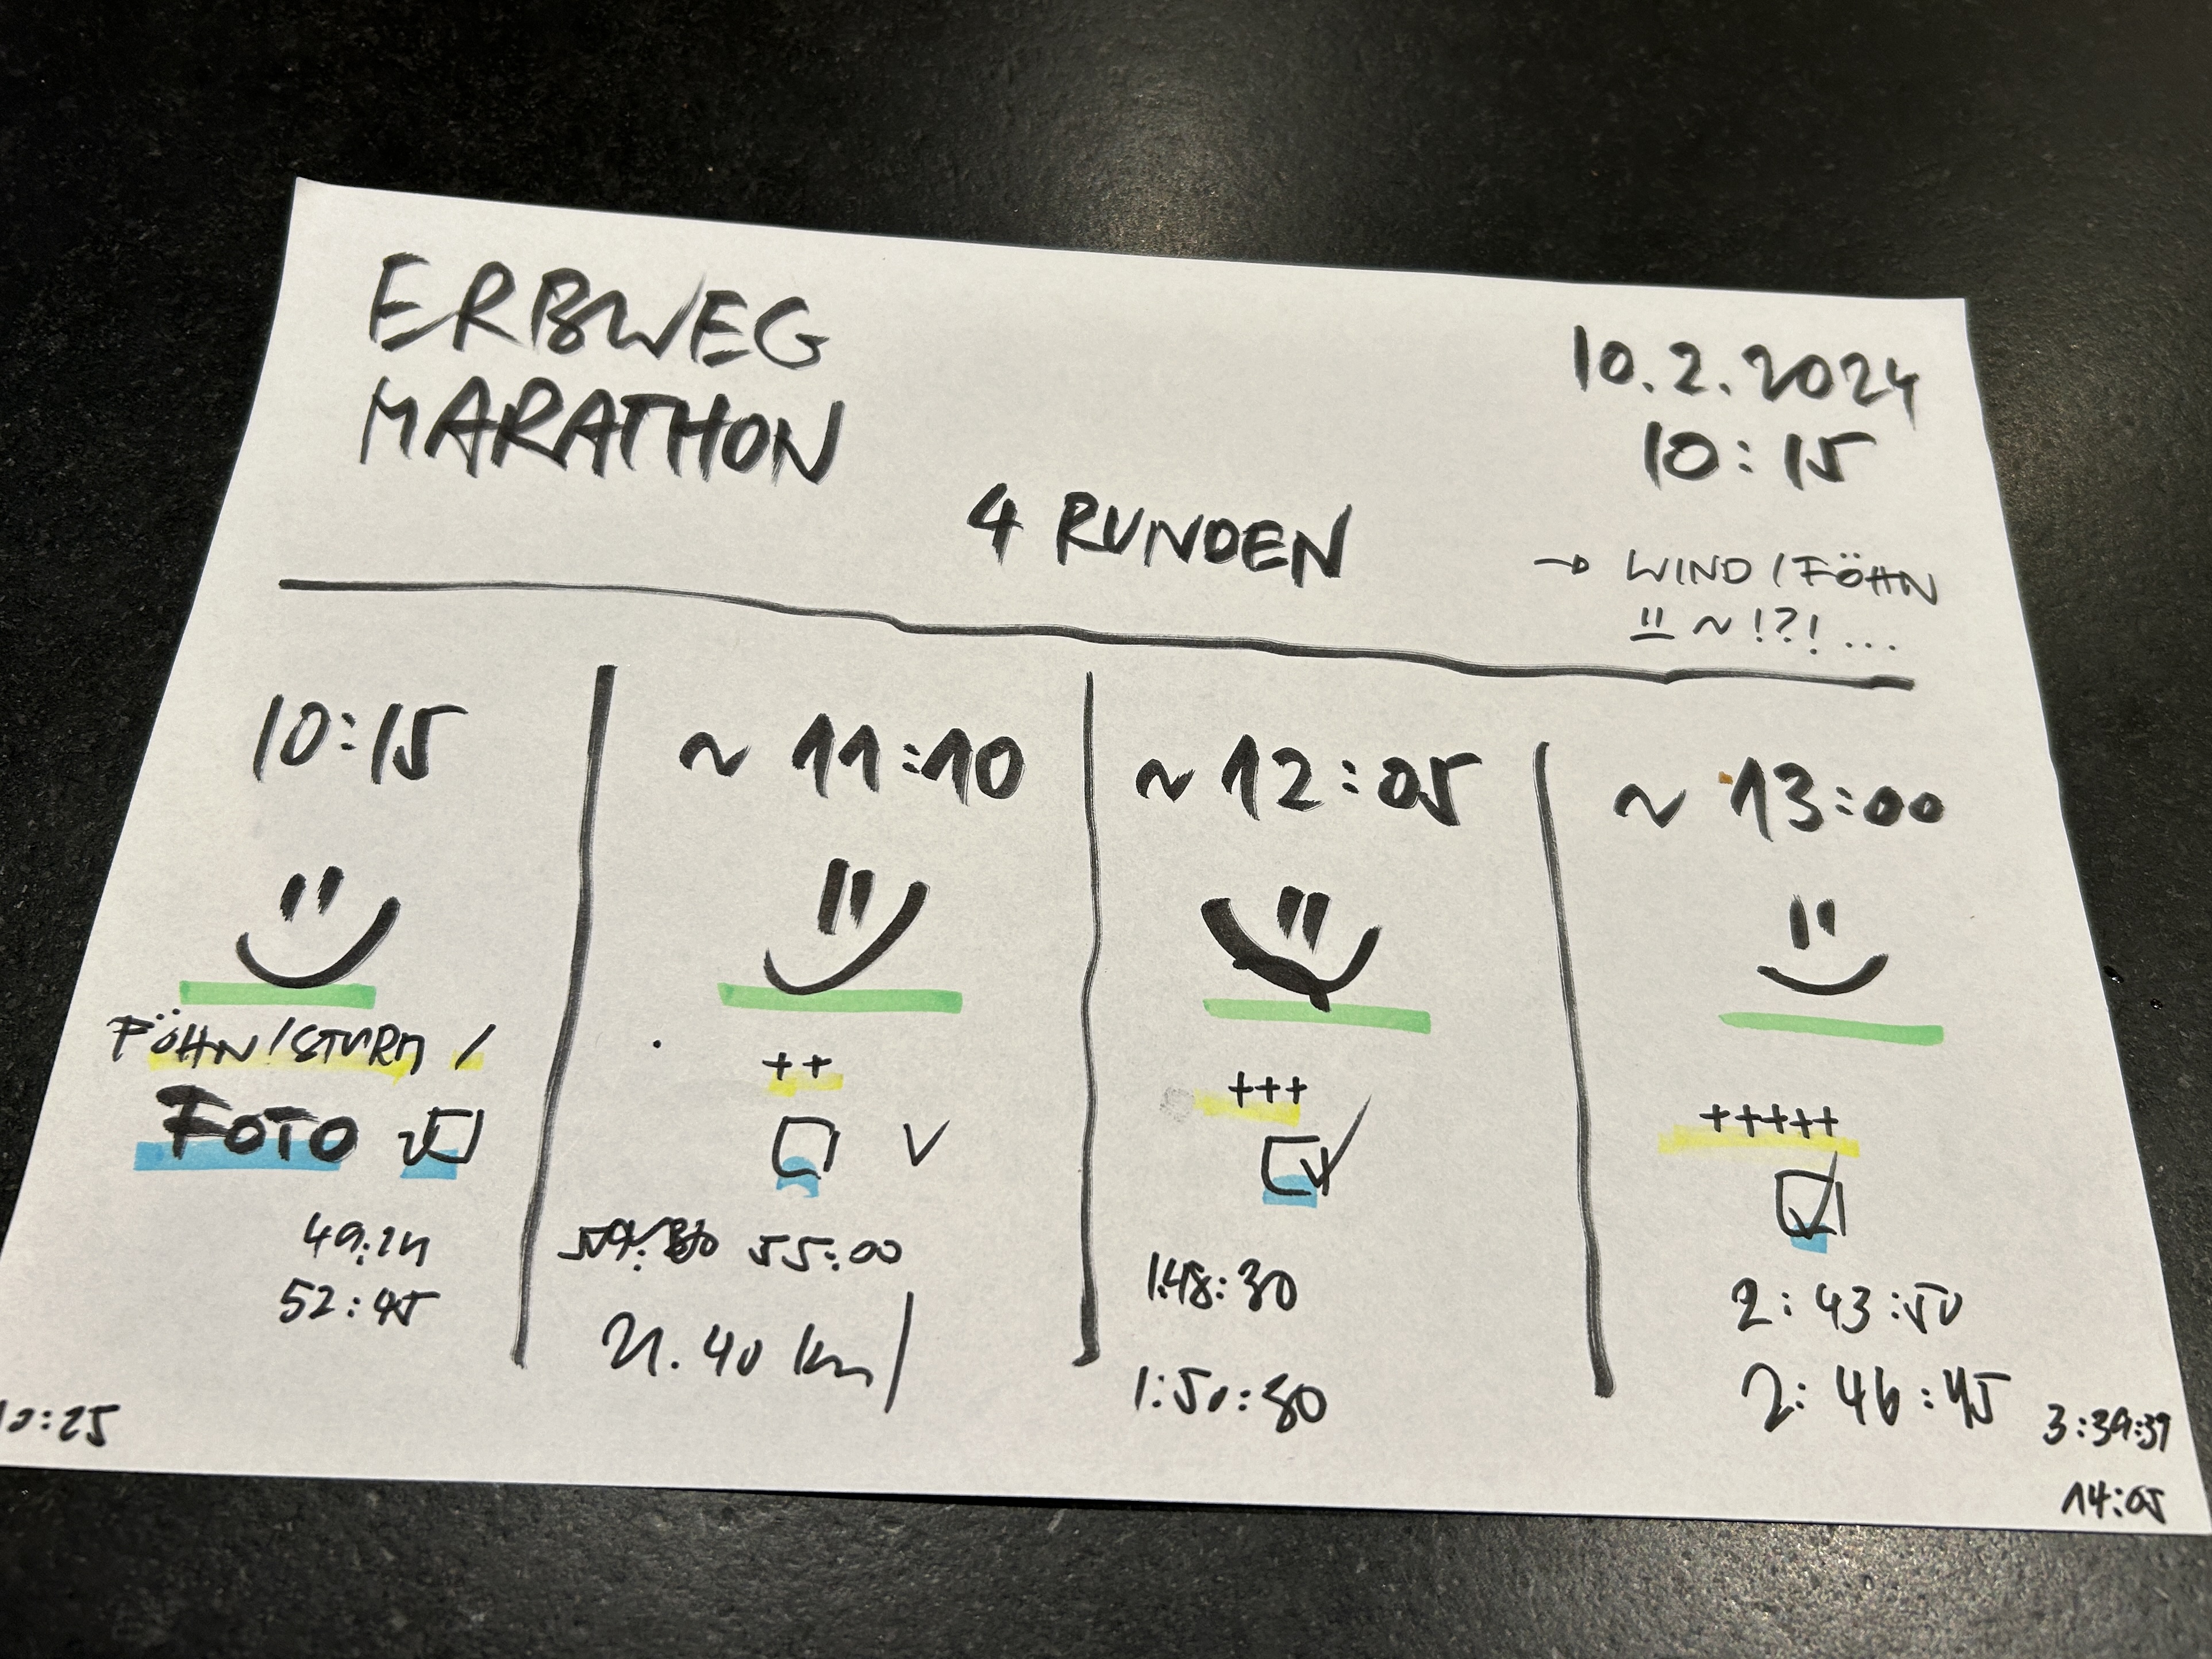 ERBWEG
MARATHON
10.2.2024
10:15
4 RUNDEN
→ WIND / FÖHN
~ !?! ...
10:15
FÖHN / STURM /
FOTO
52:45
~ 11:10
++
55:00
21.40 km
~ 12:05
+++
1:48:30
~ 13:00
+++++
2:43:50
2:46:45
14:05